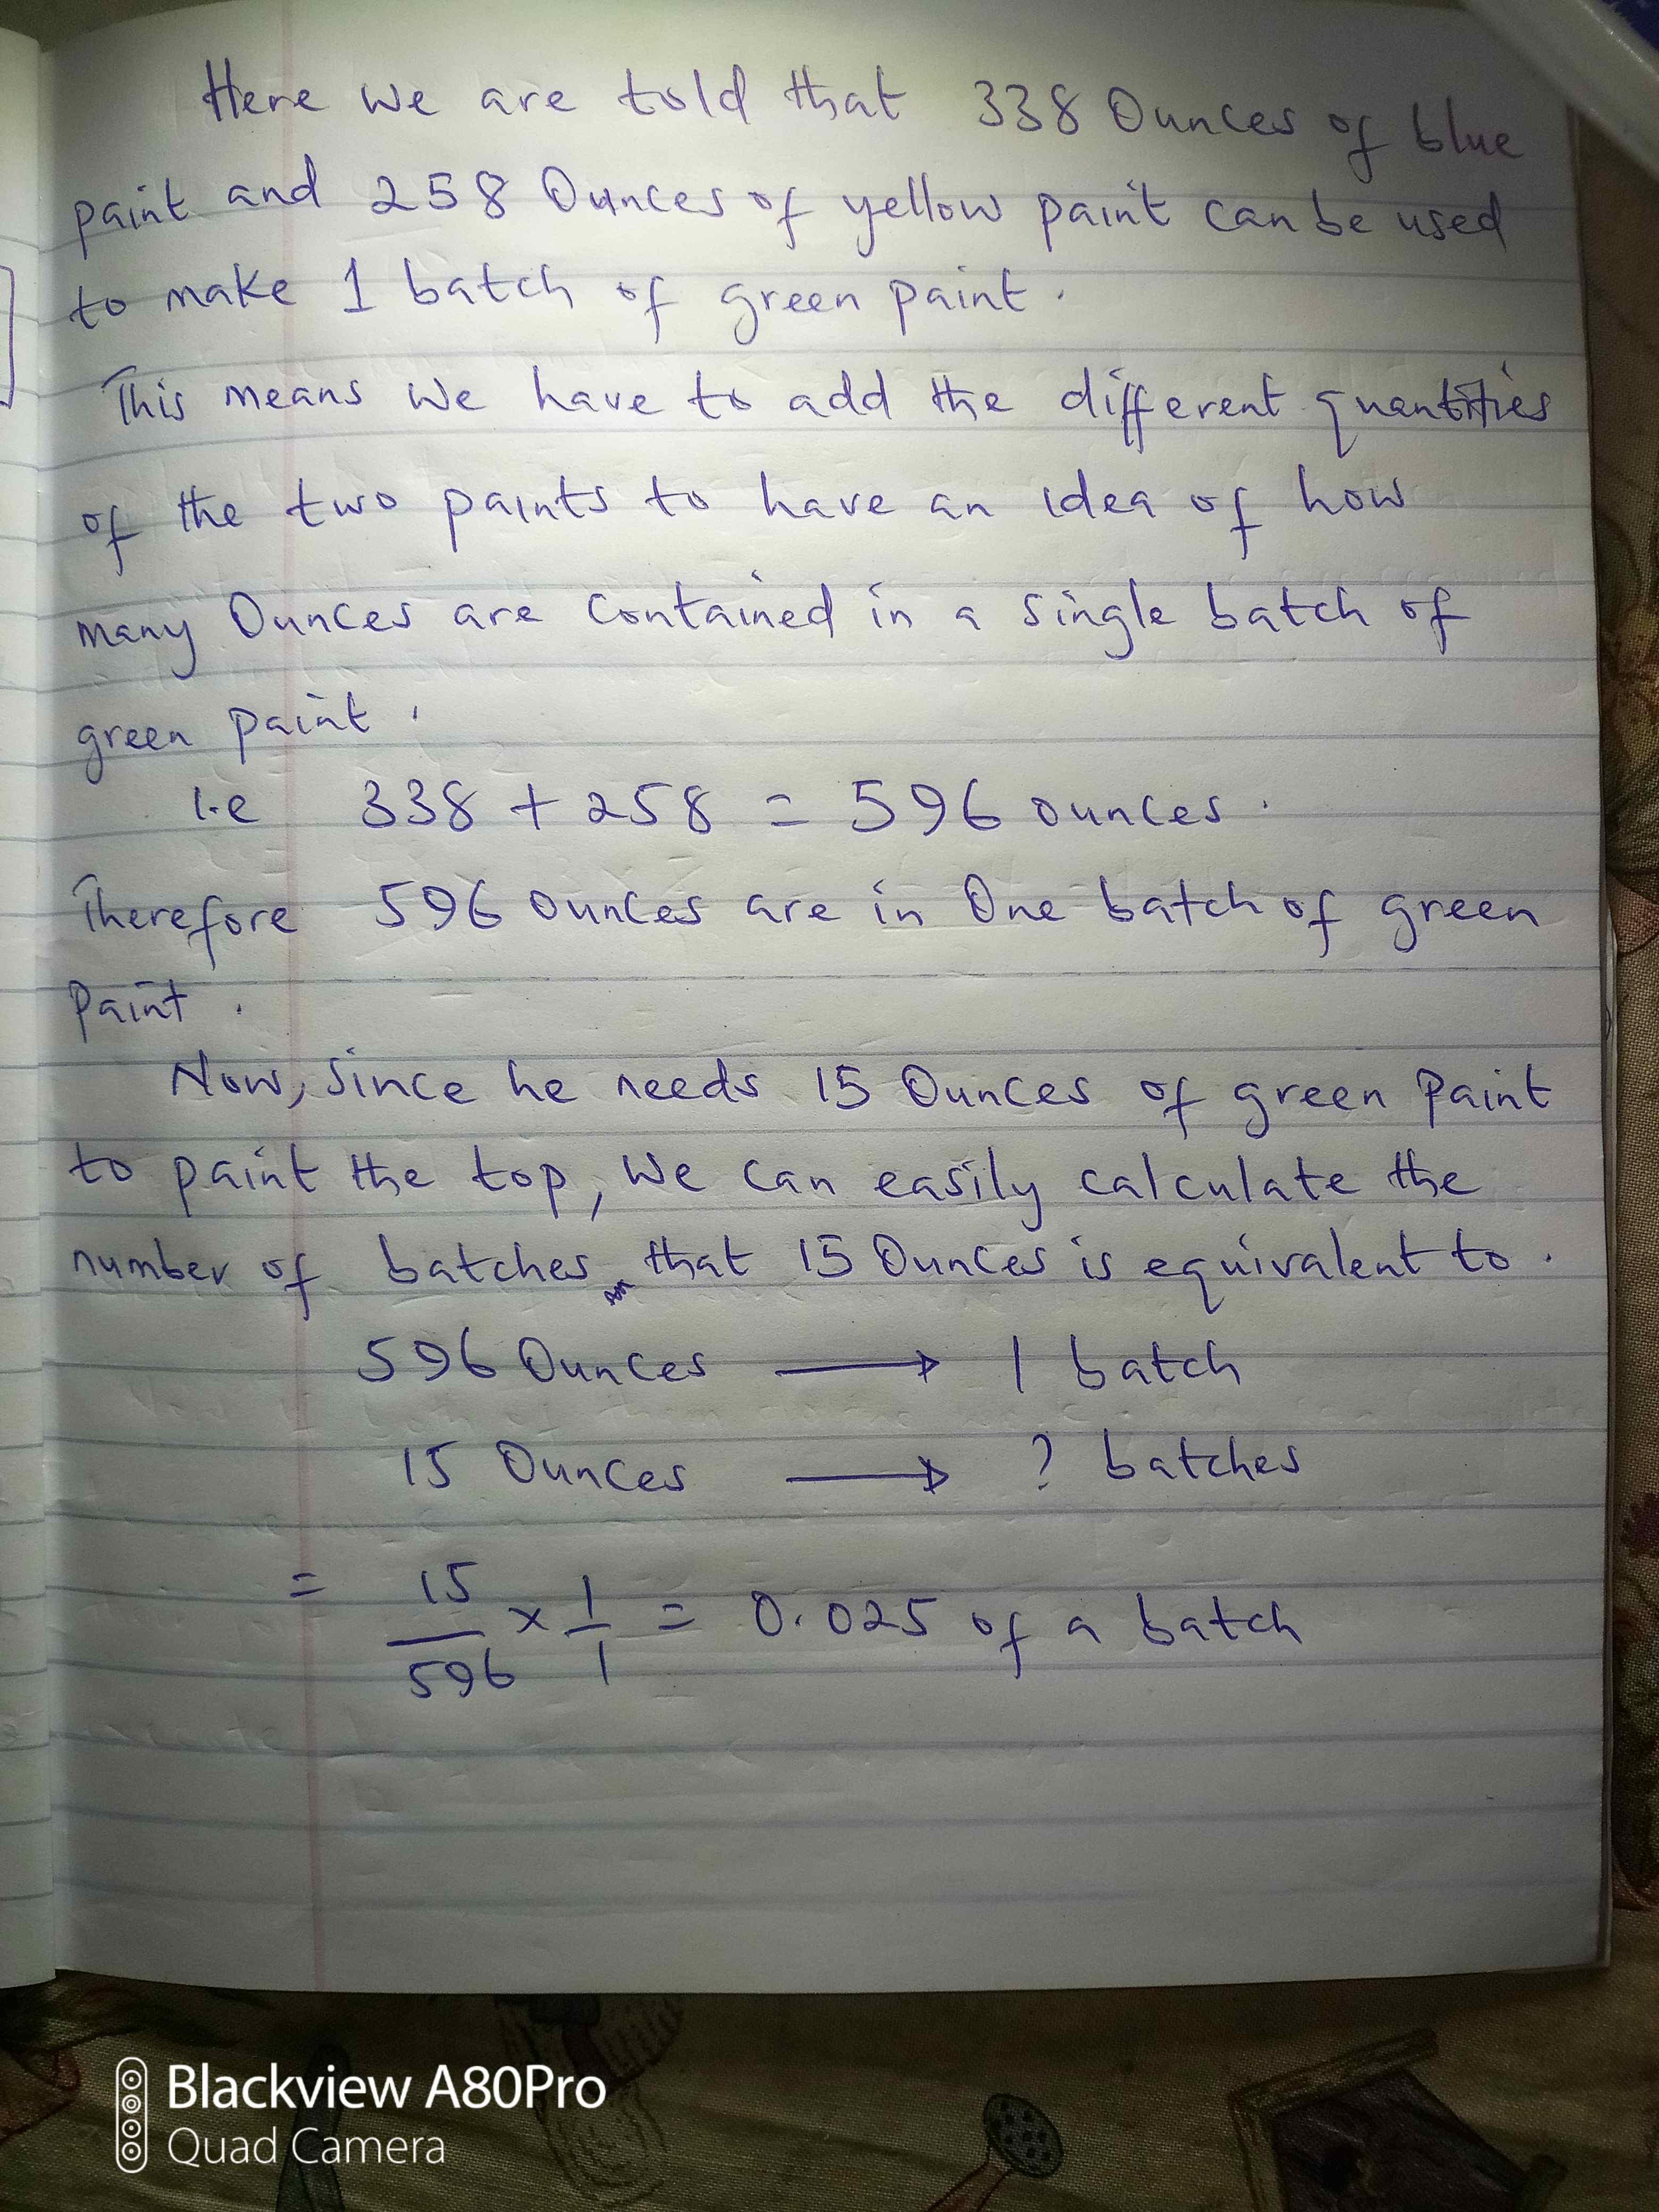 Here we are told that 338 Ounces of blue
paint and 258 Ounces of yellow paint can be used
to make 1 batch of green paint.
This means we have to add the different quantities
of the two paints to have an idea of how
many Ounces are contained in a single batch of
green paint.
i.e 338 + 258 = 596 ounces.
Therefore 596 ounces are in One batch of green
paint.
Now, Since he needs 15 Ounces of green Paint
to paint the top, we can easily calculate the
number of batches that 15 Ounces is equivalent to.
596 Ounces → 1 batch
15 Ounces → ? batches
= 15/596 × 1/1 = 0.025 of a batch
Blackview A80Pro
Quad Camera